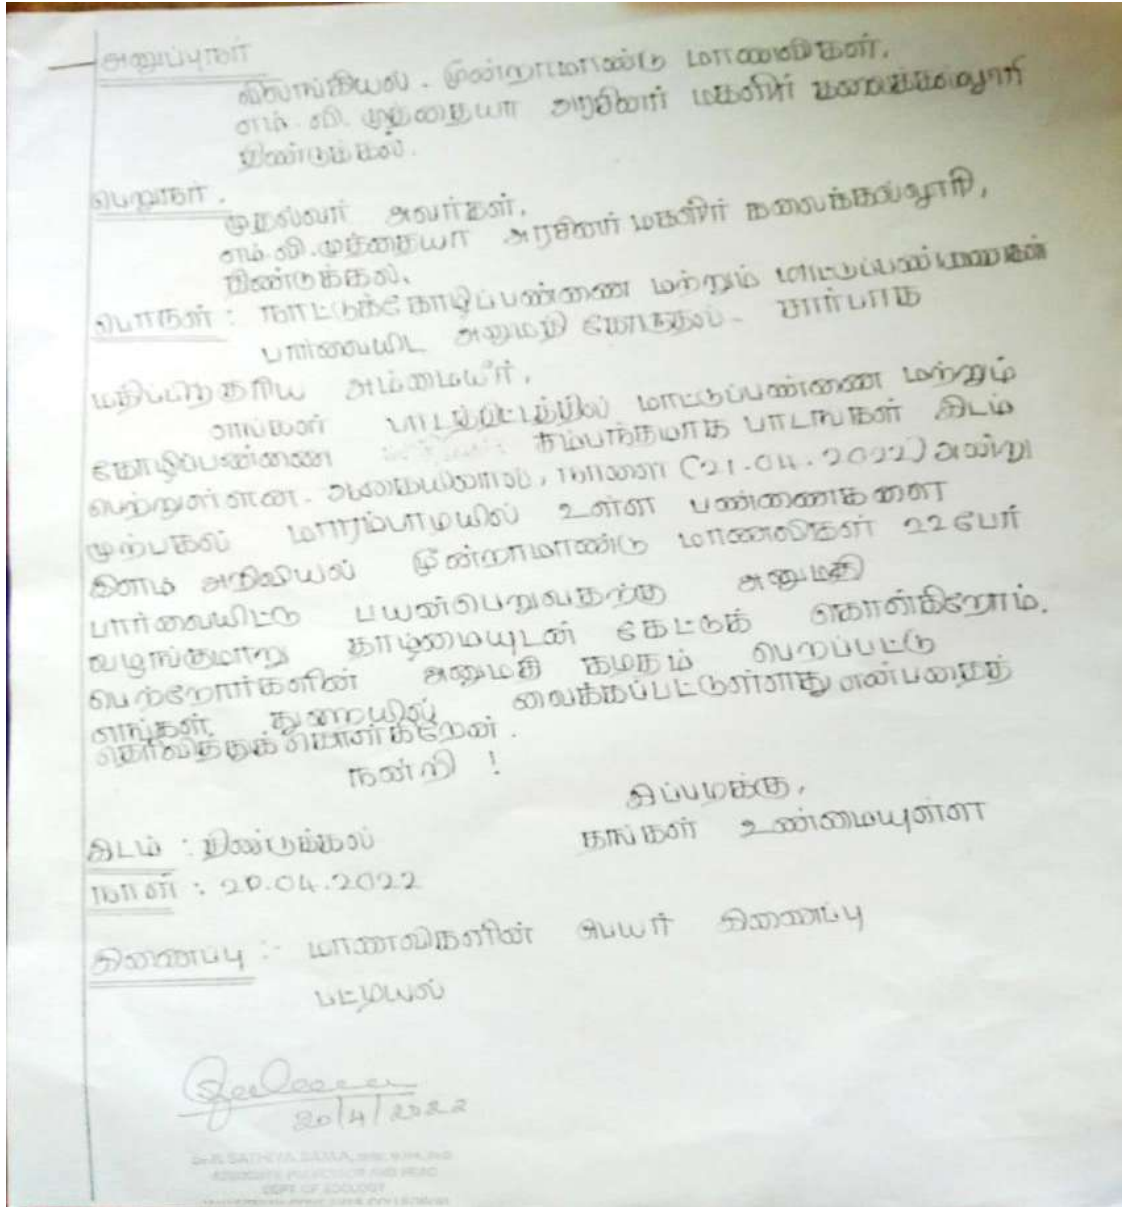 அனுப்புநர்
விலங்கியல் - மூன்றாமாண்டு மாணவிகள்,
எம்.வி. முத்தையா அரசினர் மகளிர் கலைக்கல்லூரி
திண்டுக்கல்.
பெறுநர்.
முதல்வர் அவர்கள்,
எம்.வி.முத்தையா அரசினர் மகளிர் கலைக்கல்லூரி,
திண்டுக்கல்.
பொருள் : நாட்டுக்கோழிப்பண்ணை மற்றும் மாட்டுப்பண்ணைகள்
பார்வையிட அனுமதி கோருதல் - சார்பாக
மதிப்பிற்குரிய அம்மையீர்,
எங்கள் பாடத்திட்டத்தில் மாட்டுப்பண்ணை மற்றும்
கோழிப்பண்ணை சம்பந்தமாக பாடங்கள் இடம்
பெற்றுள்ளன. ஆகையினால், நாளை (21.04.2022) அன்று
முற்பகல் மாரம்பாடியில் உள்ள பண்ணைகளை
இளம் அறிவியல் மூன்றாமாண்டு மாணவிகள் 22 பேர்
பார்வையிட்டு பயன்பெறுவதற்கு அனுமதி
வழங்குமாறு தாழ்மையுடன் கேட்டுக் கொள்கிறோம்.
பெற்றோர்களின் அனுமதி கடிதம் பெறப்பட்டு
எங்கள் துறையில் வைக்கப்பட்டுள்ளது என்பதைத்
தெரிவித்துக் கொள்கிறேன்.
நன்றி !
இப்படிக்கு,
இடம் : திண்டுக்கல் தங்கள் உண்மையுள்ள
நாள் : 20.04.2022
இணைப்பு :- மாணவிகளின் பெயர் இணைப்பு
பட்டியல்
20/4/2022
ASSOCIATE PROFESSOR AND HEAD
DEPT OF ZOOLOGY